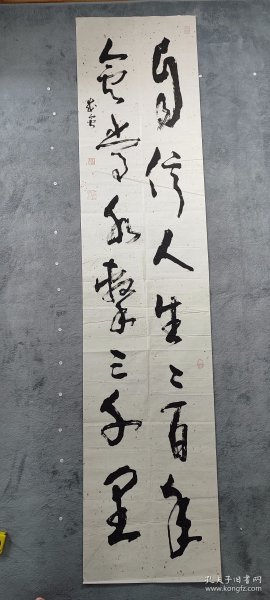 自信人生二百年
会当水擊三千里
孔夫子旧书网
www.kongfz.com